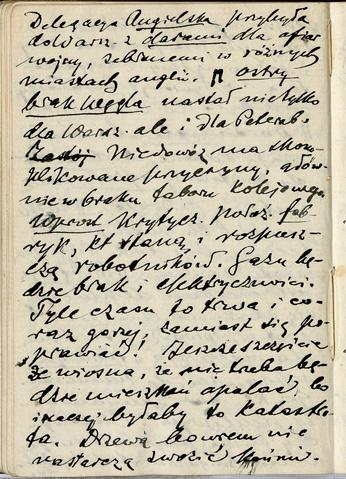 Delegacya Angielska przybyła
do Warsz. z darami dla ofiar
wojny, zebranemi w różnych
miastach anglii. ostry
brak węgla nastał nie tylko
dla Warsz. ale i dla Petersb.
Zastój Niedowóz ma skom-
plikowane przyczyny, głów-
nie w braku taboru kolejowego
wprost krytycz. położ. fab-
ryk, kt staną i rozpusz-
czą robotników. Gazu bę-
dzie brak i elektryczności.
Tyle czasu to trwa i co-
raz gorzej, zamiast się po-
prawiać! Jeszcze szczęście
że wiosna, że nie trzeba bę-
dzie mieszkań opalać, bo
inaczej byłaby to katastro-
fa. Drzewa bowiem nie
nastarczą zwozić